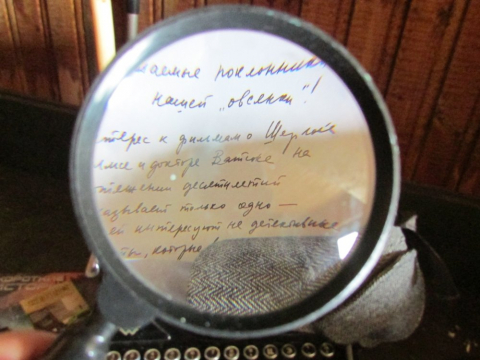 аемые поклонники
нашей „овсянки"!
терес к фильмам о Шерлоке
лмсе и докторе Ватсоне на
отяжении десятилетий
азывает только одно —
ей интересуют не детективные
ты, которые